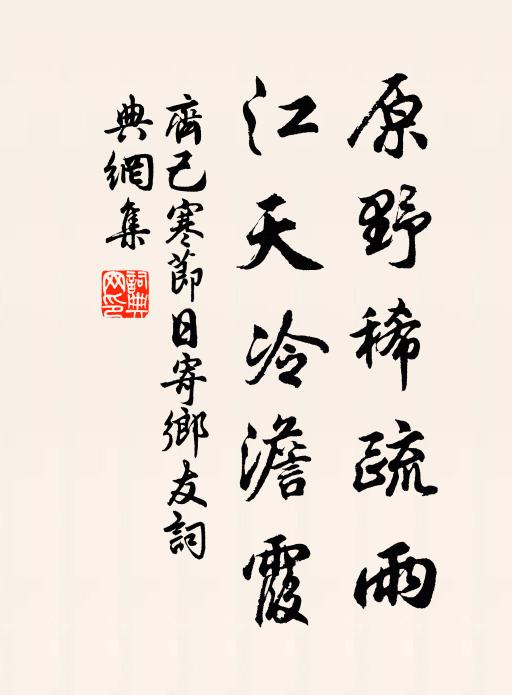 原野稀疏雨
江天冷澹霞
齊己寒節日寄鄉友詞
典網集
詞典
网印